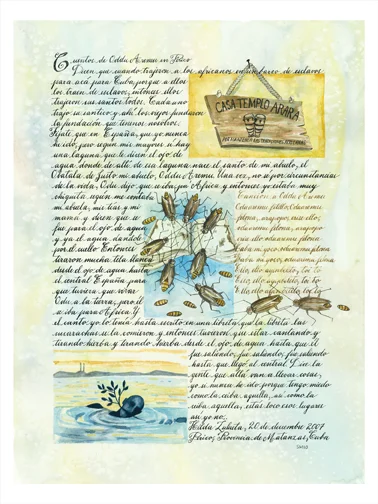 Cuentos de Oddu Aremu en Perico
Dicen que cuando trajeron a los africanos en un barco de esclavos
para acá para Cuba, porque a ellos
los traen de esclavos, entonces ellos
trajeron sus santos todos. Cada uno
trajo su santico y ahí los viejos fundaron
la fundación que tenemos nosotros.
Fíjate que en España, que yo nunca
he ido, pero según mis mayores si hay
una laguna que le dicen el ojo de
agua donde de allá de esa laguna nace el santo de mi abuelo, el
Obatala de Justo mi abuelo, Oddu Aremu. Una vez, no por circunstancias
de la vida, Oddu dijo que se iba pa Africa y entonces yo estaba muy
chiquita según me contaba
mi abuela, mi tía y mi
mamá y dicen que se
fue para el ojo de agua
y ya el agua dándole
por el cuello. Entonces
tiraron mucha tela blanca
desde el ojo de agua hasta
el central España para
que tuviera que venir
Oddu a la tierra, pero él
se iba para Africa. Y
el canto yo lo tenía hasta escrito en una libreta que la libreta las
cucarachas se la comieron y entonces tuvieron que estar cantando y
tirando hierba y tirando hierba desde el ojo de agua hasta que él
fue saliendo, fue saliendo, fue saliendo
hasta que llegó al central. Dice la
gente que allá van a llevar cosas,
yo sí nunca he ido porque tengo miedo
como la ceiba aquella, así como la
ceiba aquella, estás loco esos lugares
así yo no.
Hilda Zulueta, 20 de diciembre 2007
Perico, Provincia de Matanzas, Cuba
CASA TEMPLO ARARA